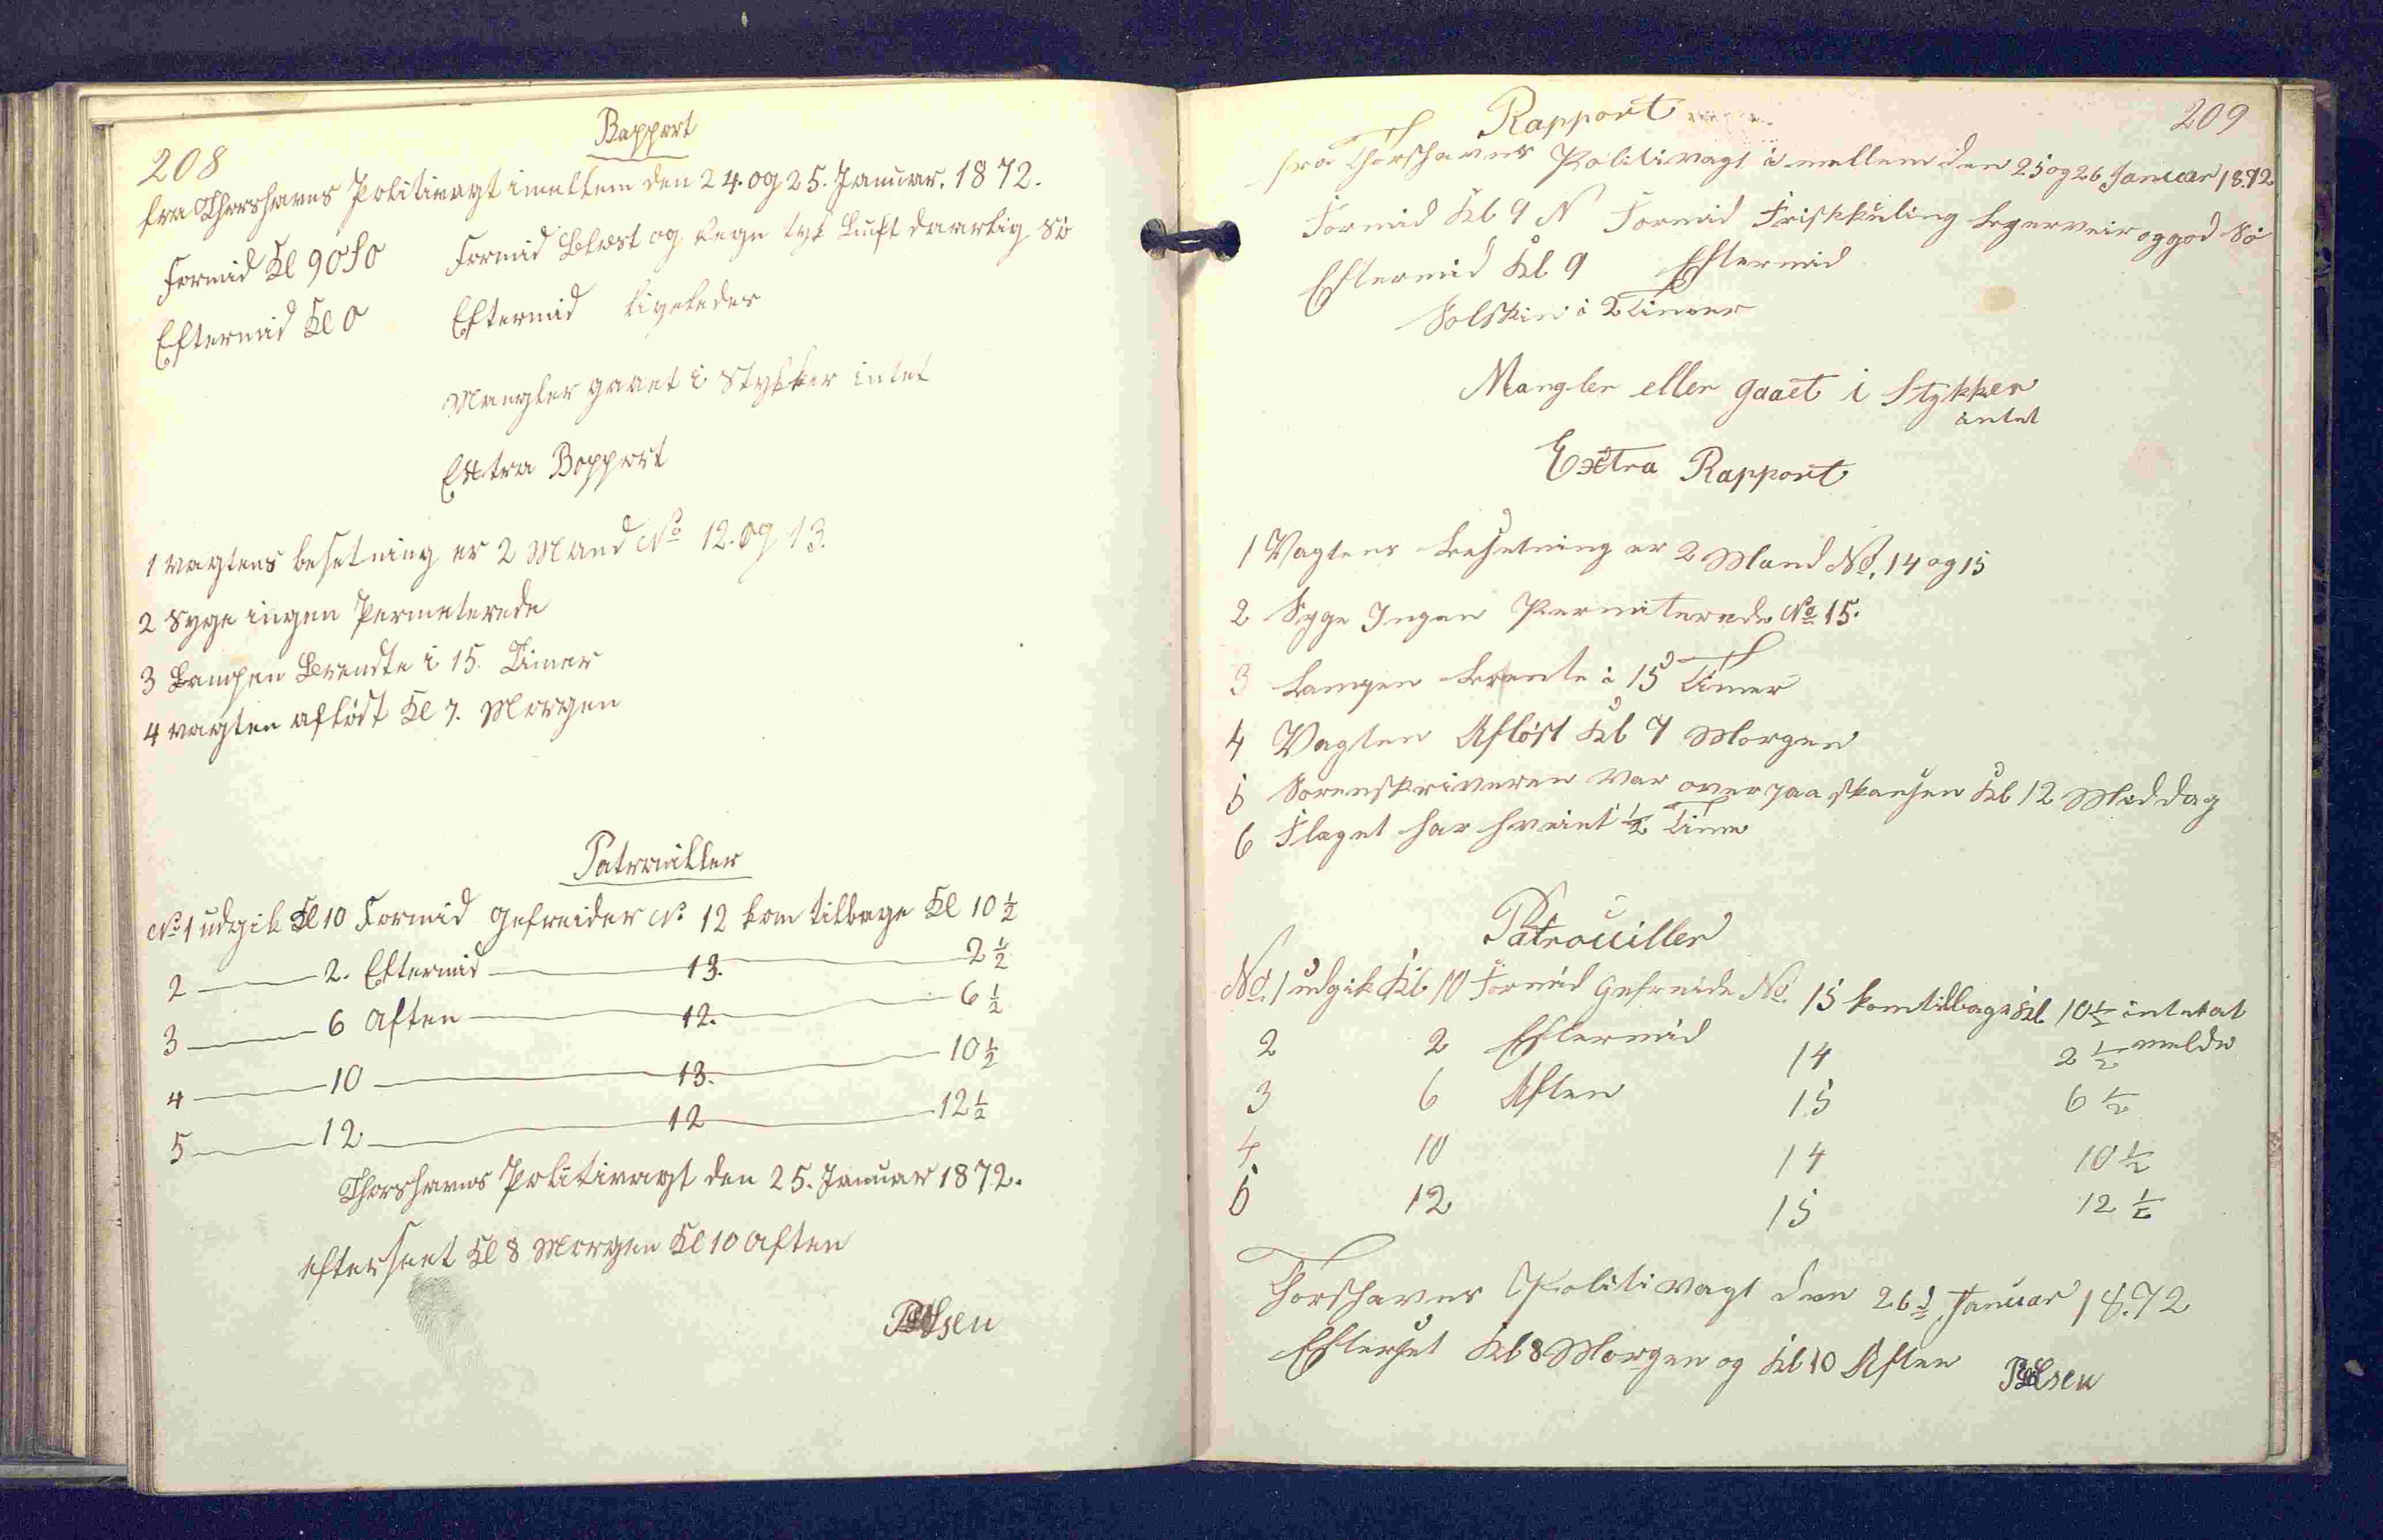 208
Rapport
fra Thorshavns Politivagt imellem den 24. og 25. Januar. 1872.
Formid Kl 9 OSO Formid Blæst og Regn tyk Luft daarlig Sö
Eftermid Kl O Eftermid ligeledes
Mangler gaaet i Stykker intet
Extra Rapport
1 Vagtens besetning er 2 Mand No 12. og 13.
2 Syge ingen Permeterede
3 Lampen Brendte i 15. Timer
4 Vagten aflöst Kl 7. Morgen
Patrouiller
No 1 udgik Kl 10 Formid Gefreider No 12 kom tilbage Kl 10 1/2
2 — 2. Eftermid — 13. — 2 1/2
3 — 6 Aften — 12. — 6 1/2
4 — 10 — 13. — 10 1/2
5 — 12 — 12 — 12 1/2
Thorshavns Politivagt den 25. Januar 1872.
efterseet Kl 8 Morgen Kl 10 Aften
209
Rapport
fra Thorshavns Politivagt i mellem den 25 og 26 Januar 1872
Formid Kl 9 N Formid Friskkuling Legerveir og god Sö
Eftermid Kl 9 Eftermid
Solskin i 2 Timer
Mangler eller gaaet i Stykker
intet
Extra Rapport
1 Vagtens Besetning er 2 Mand No. 14 og 15
2 Syge Ingen Permiterede No 15.
3 Lampen Brente i 15 Timer
4 Vagten Aflöst Kl 7 Morgen
5 Sorenskriveren var over paa skansen Kl 12 Middag
6 Flaget har hveiet 1/2 Time
Patrouiller
No. 1 udgik Kl 10 Formid Gefreide No. 15 kom tilbage Kl 10 1/2 intet at
melde
2 2 Eftermid 14 2 1/2
3 6 Aften 15 6 1/2
4 10 14 10 1/2
5 12 15 12 1/2
Thorshavns Politivagt den 26d Januar 1872
Efterset Kl 8 Morgen og Kl 10 Aften